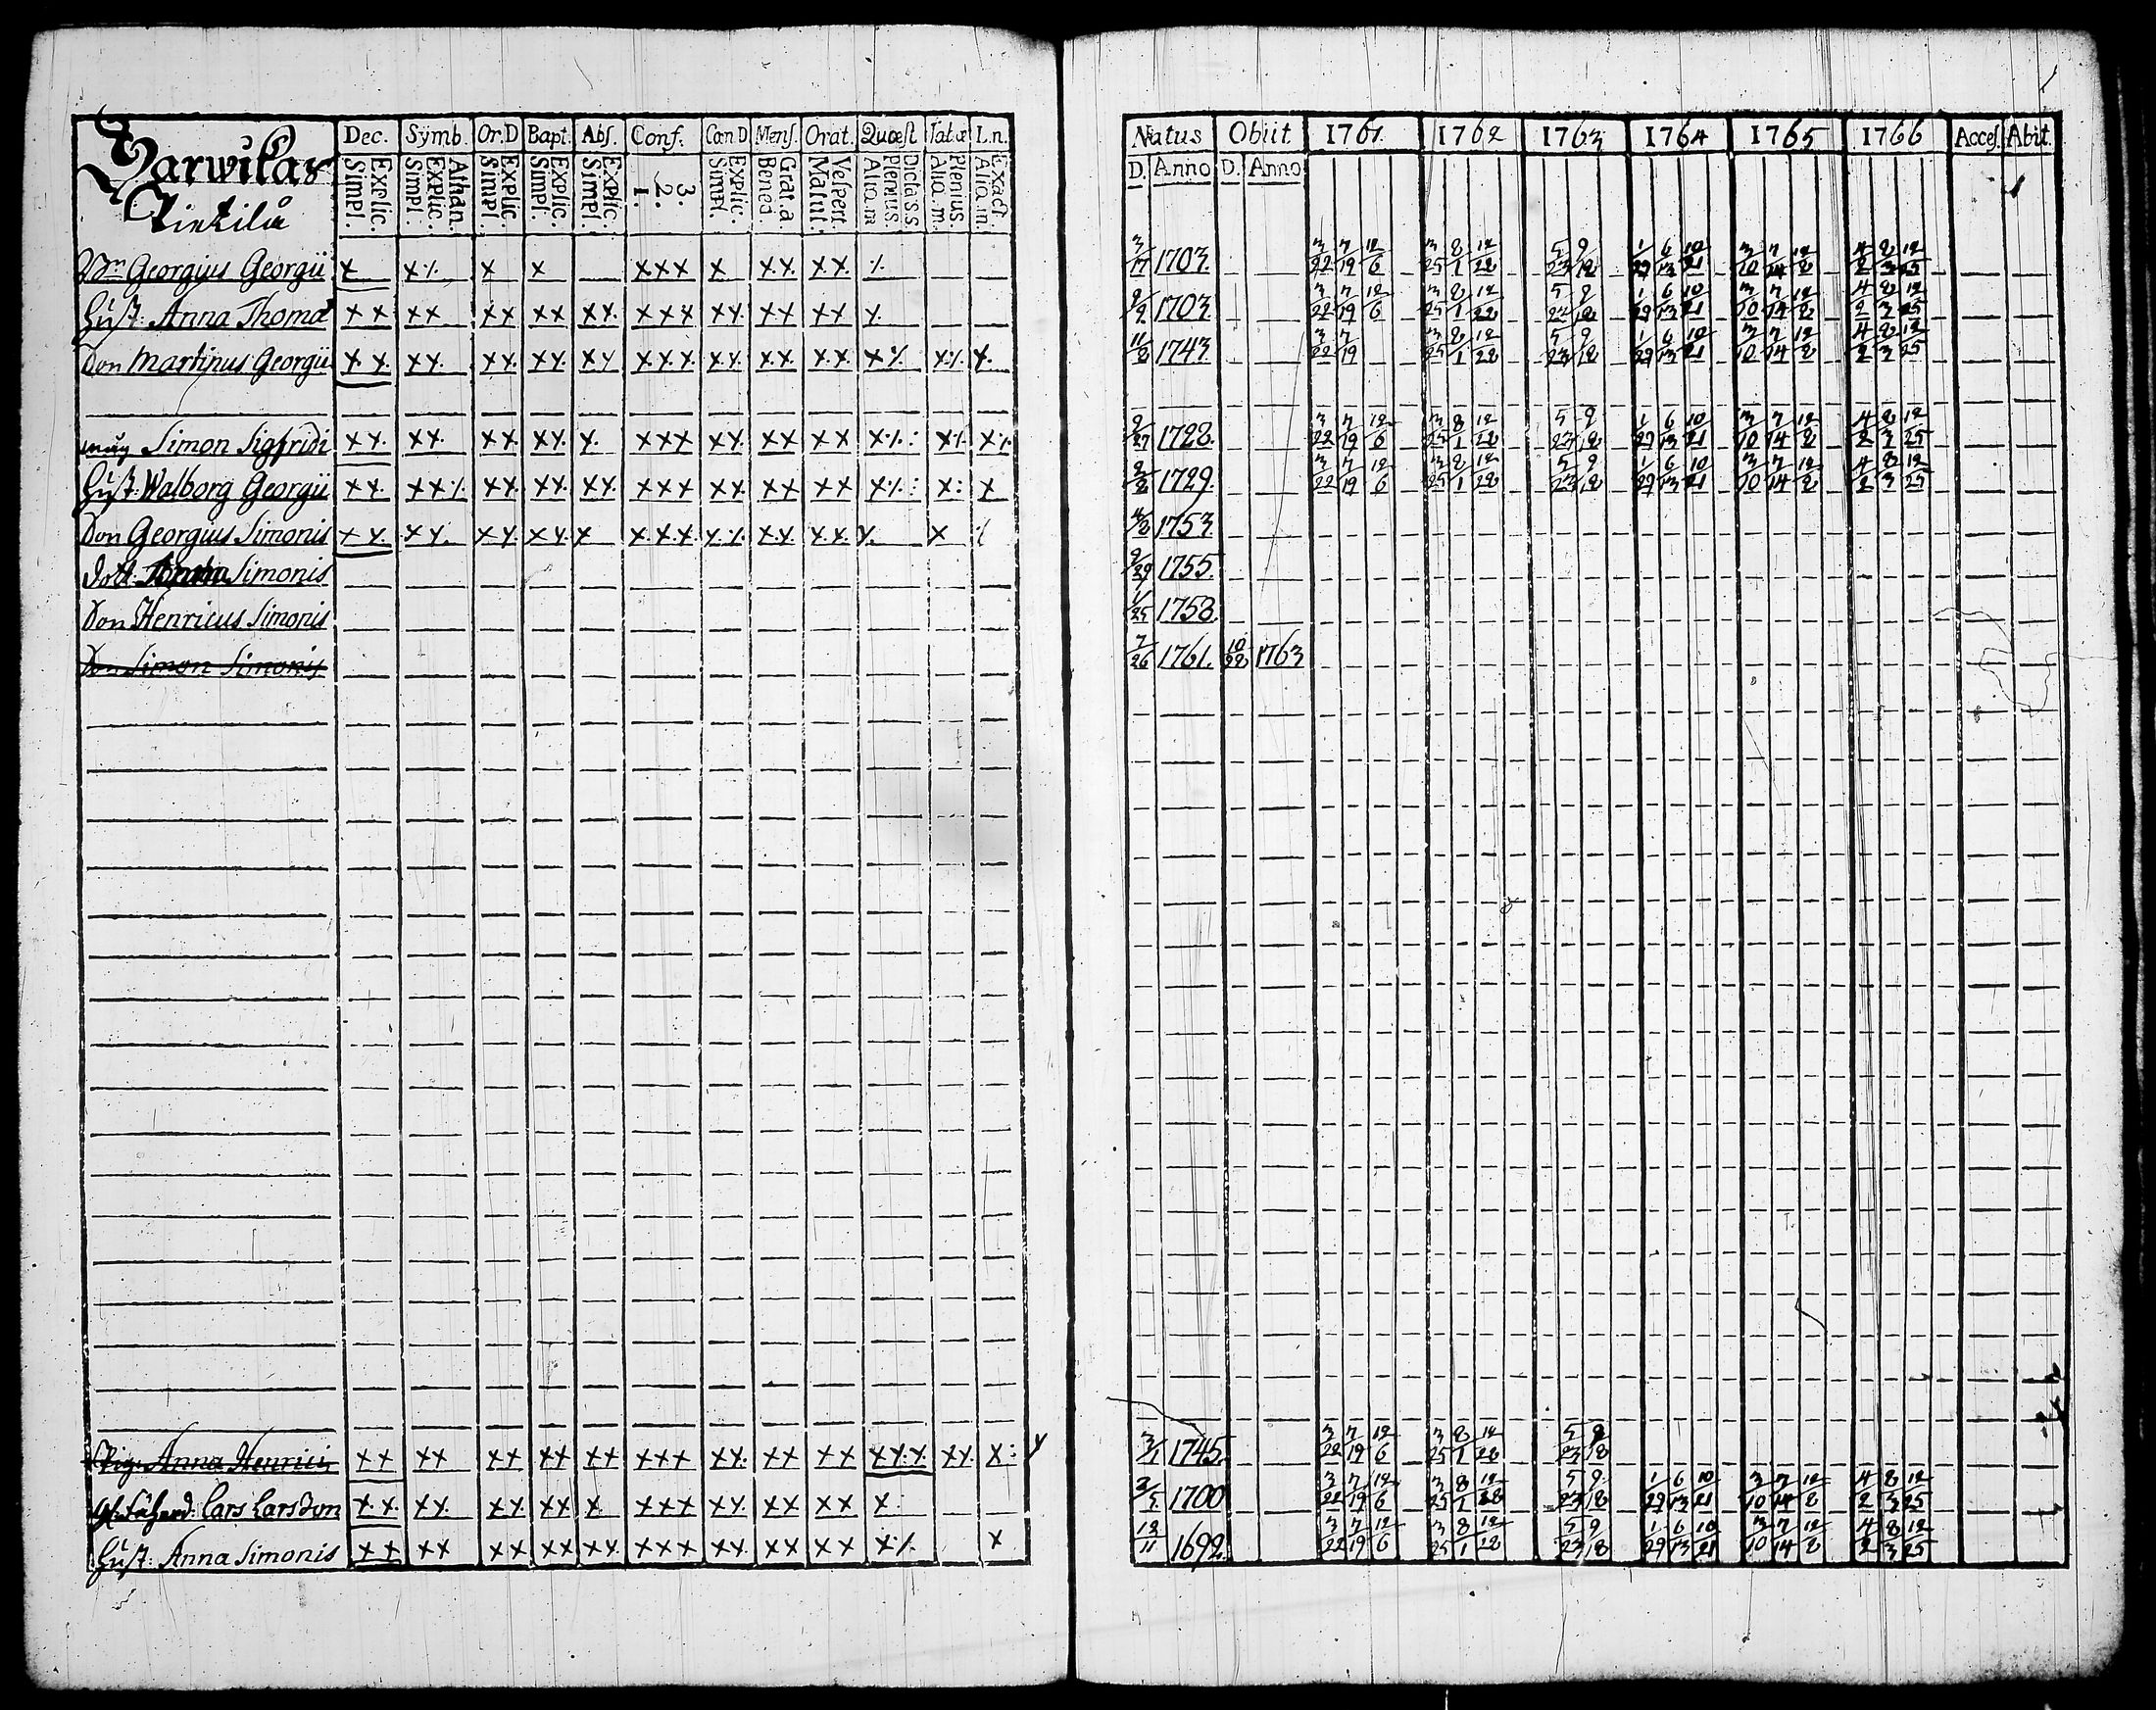 Dec. Symb. Or.D Bapt. Abſ. Conf. Cœn D Menſ. Orat. Quæſt Tabul L.n.
Simpl. Explic. Simpl. Explic. Athan. Simpl. Explic. Simpl. Explic. Simpl. Explic. 1. 2. 3. Simpl. Explic. Bened. Grat.a Matut. Veſpert. Alia.m Plenius. Dicta S.S. Alia.m. Plenius Alia m. Exact
Natus Obiit 1761 1762 1763 1764 1765 1766 Acceſ. Abit.
D. Anno D. Anno
Georgius Georgii x x٪ x x xxx x xx. xx. ٪ 3/17 1703. 3/22 7/19 12/6 3/25 8/1 12/28 5/23 9/18 1/29 6/13 10/21 3/10 7/14 12/8 4/2 8/3 12/25
Huſt. Anna Thomæ xx xx xx xx xx. xxx xx. xx xx x. 1703. 3/22 7/19 12/6 3/25 8/1 12/28 5/23 9/18 1/29 6/13 10/21 3/10 7/14 12/8 4/2 8/3 12/25
Son Martinus Georgii xx. xx. xx. xx. xx xxx xx. xx. xx. x٪ x٪. x. 11/8 1743. 3/22 7/19 3/25 8/1 12/28 5/23 9/18 1/29 6/13 10/21 3/10 7/14 12/8 4/2 8/3 12/25
Simon Sigfridi xx. xx. xx xx. x. xxx xx. xx xx x٪: x٪ x٪ 9/27 1728. 3/22 7/19 12/6 3/25 8/1 12/28 5/23 9/18 1/29 6/13 10/21 3/10 7/14 12/8 4/2 8/3 12/25
Huſt. Walborg Georgii xx. xx٪ xx. xx. xx. xxx xx. xx xx x٪: x: x 1729. 3/22 7/19 12/6 3/25 8/1 12/28 5/23 9/18 1/29 6/13 10/21 3/10 7/14 12/8 4/2 8/3 12/25
Son Georgius Simonis xx. xx. xx. xx. x x.x.x x٪. xx. xx. x. x ٪ 1753.
Dott. Simonis 9/29 1755.
Son Henricus Simonis 1/25 1758.
Son Simon Simonis 7/26 1761. 10/28 1763
Pig. Anna Henrici xx xx xx xx xx xxx xx. xx xx xx.x. xx. x: 3/1 1745. 3/22 7/19 12/6 3/25 8/1 12/28 5/23 9/18
Lars Larsson x.x. xx. xx. xx x. xxx xx. xx xx x. 1700 3/22 7/19 12/6 3/25 8/1 12/28 5/23 9/18 1/29 6/13 10/21 3/10 7/14 12/8 4/2 8/3 12/25
Huſt. Anna Simonis xx xx xx xx xx. xxx xx. xx xx x٪. x 12/11 1692. 3/22 7/19 12/6 3/25 8/1 12/28 5/23 9/18 1/29 6/13 10/21 3/10 7/14 12/8 4/2 8/3 12/25